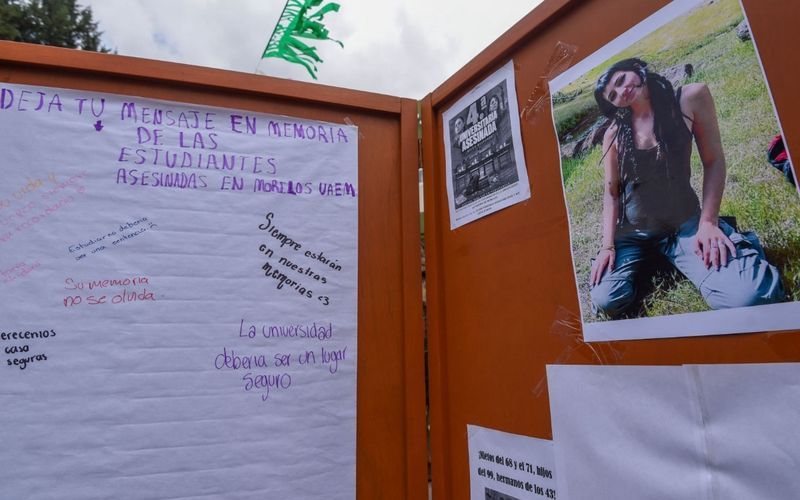 DEJA TU MENSAJE EN MEMORIA
DE LAS
ESTUDIANTES
ASESINADAS EN MORELOS UAEM
Estudiar no debería
ser una sentencia
Siempre estarán
en nuestras
memorias <3
Su memoria
no se olvida
erecemos
casa
seguras
La universidad
debería ser un lugar
seguro
4ª
UNIVERSITARIA
ASESINADA
¡Nietos del 68 y el 71, hijos
del 99, hermanos de los 43!